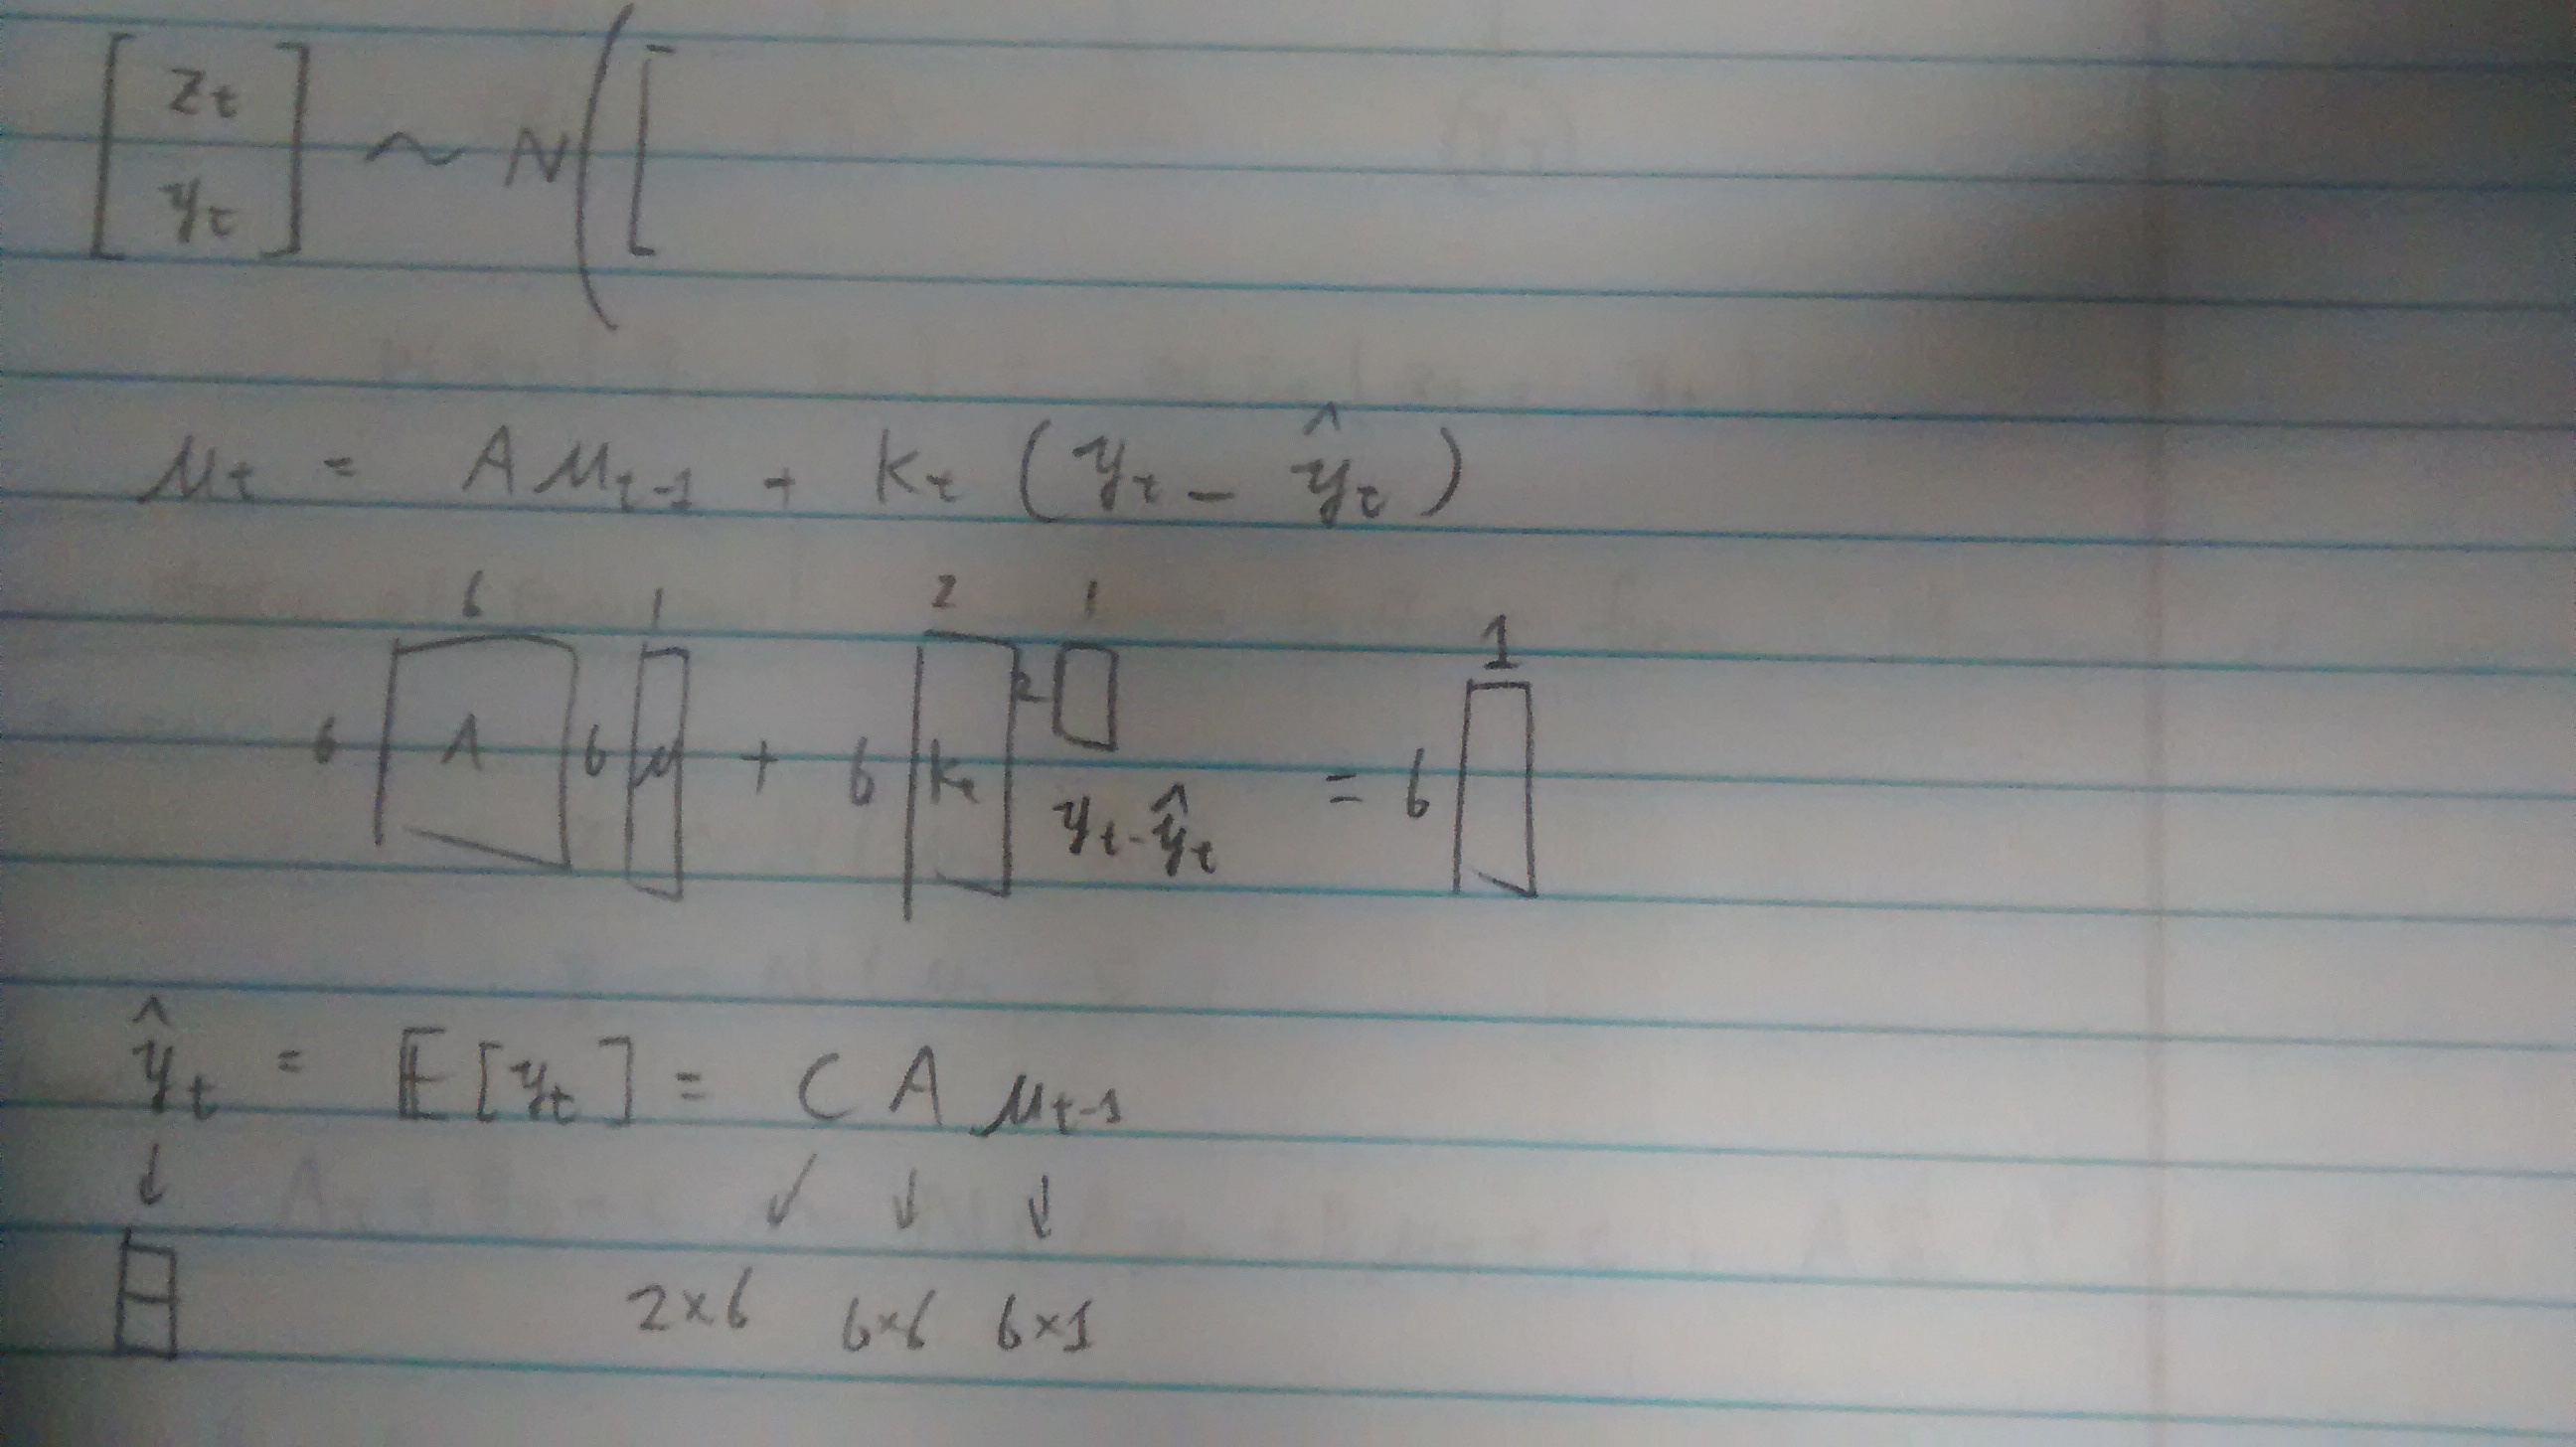 [ z_t
y_t ] ~ N ( [
μ_t = A μ_{t-1} + K_t ( y_t - ŷ_t )
6 1 2 1 1
6 A 6 μ + 6 K_t 2 y_t - ŷ_t = 6
ŷ_t = 𝔼 [ y_t ] = C A μ_{t-1}
↓ ↙ ↓ ↓
2×6 6×6 6×1